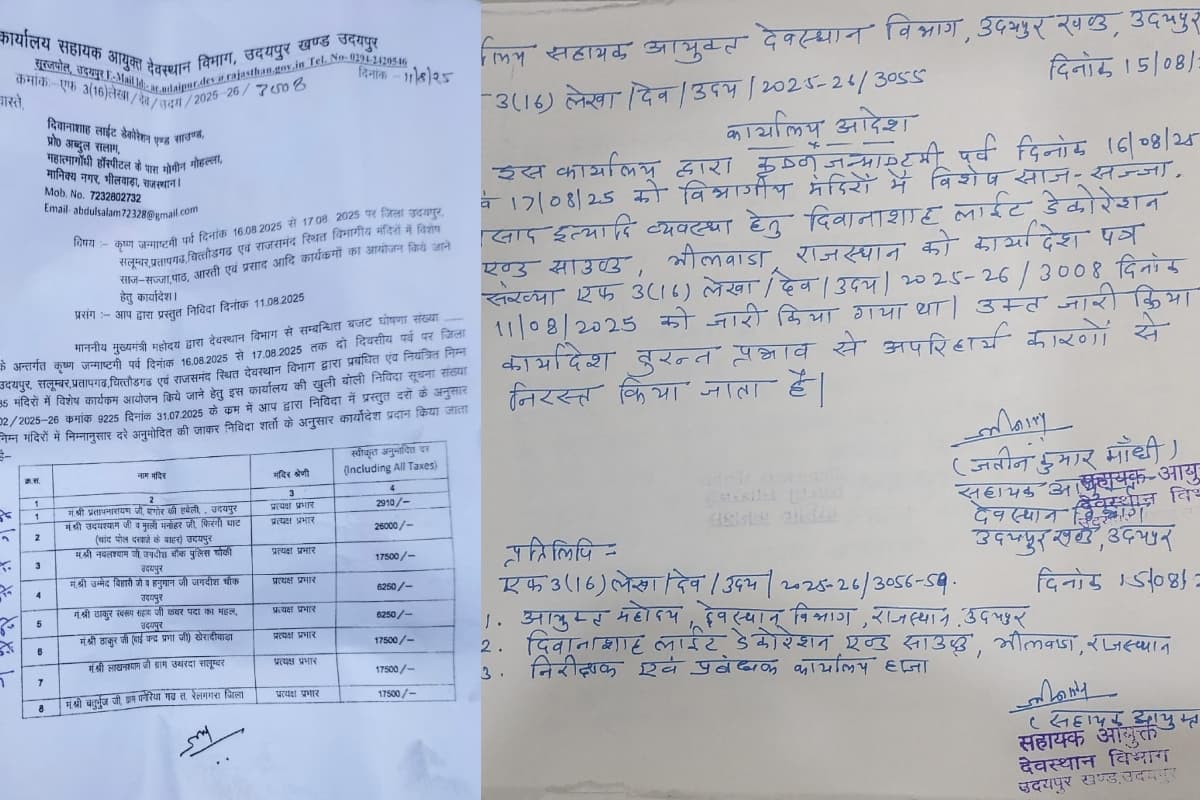 कार्यालय सहायक आयुक्त देवस्थान विभाग, उदयपुर खण्ड उदयपुर
सूरजपोल, उदयपुर E-Mail Id:-ac.udaipur.dev@rajasthan.gov.in Tel. No- 0294-2420546
कमांक:- एफ 3(16)लेखा/देव/उदय/2025-26/ 3008 दिनांक - 11/8/25
दिवानाशाह लाईट डेकोरेशन एण्ड साउण्ड,
प्रो0 अब्दुल सलाम,
महात्मागाँधी हॉस्पीटल के पास मोमीन मोहल्ला,
माणिक्य नगर, भीलवाड़ा, राजस्थान।
Mob. No. 7232802732
Email- abdulsalam72328@gmail.com
विषय :- कृष्ण जन्माष्टमी पर्व दिनांक 16.08.2025 से 17.08. 2025 पर जिला उदयपुर,
सलूम्बर,प्रतापगढ,चित्तौडगढ एवं राजसमंद स्थित विभागीय मंदिरों में विशेष
साज-सज्जा,पाठ, आरती एवं प्रसाद आदि कार्यकमों का आयोजन किये जाने
हेतु कार्यादेश।
प्रसंग :- आप द्वारा प्रस्तुत निविदा दिनांक 11.08.2025
माननीय मुख्यमंत्री महोदय द्वारा देवस्थान विभाग से सम्बन्धित बजट घोषणा संख्या
के अन्तर्गत कृष्ण जन्माष्टमी पर्व दिनांक 16.08.2025 से 17.08.2025 तक दो दिवसीय पर्व पर जिला
उदयपुर, सलूम्बर,प्रतापगढ,चित्तौडगढ एवं राजसमंद स्थित देवस्थान विभाग द्वारा प्रबंधित एंव नियंत्रित निम्न
35 मंदिरों में विशेष कार्यकम आयोजन किये जाने हेतु इस कार्यालय की खुली बोली निविदा सूचना संख्या
02/2025-26 कमांक 9225 दिनांक 31.07.2025 के कम में आप द्वारा निविदा में प्रस्तुत दरों के अनुसार
निम्न मंदिरों में निम्नानुसार दरे अनुमोदित की जाकर निविदा शर्तो के अनुसार कार्यादेश प्रदान किया जाता
है-
क्र.स. नाम मंदिर मंदिर श्रेणी स्वीकृत अनुमोदित दर (Including All Taxes)
1 2 3 4
1 मं.श्री प्रतापनारायण जी, बागोर की हवेली, , उदयपुर प्रत्यक्ष प्रभार 2910/-
2 मं.श्री उदयश्याम जी व मुरली मनोहर जी, फिरंगी घाट (चांद पोल दरवाजे के बाहर) उदयपुर प्रत्यक्ष प्रभार 26000/-
3 मं.श्री नवलश्याम जी जगदीश चौक पुलिस चौकी उदयपुर प्रत्यक्ष प्रभार 17500/-
4 मं.श्री उम्मेद बिहारी जी व हनुमान जी जगदीश चौक उदयपुर प्रत्यक्ष प्रभार 6250/-
5 मं.श्री ठाकुर स्वरूप सहाय जी कंवर पदा का महल, उदयपुर प्रत्यक्ष प्रभार 6250/-
6 मं.श्री ठाकुर जी (बाई चन्द्र प्रभा जी) खेरादीवाडा प्रत्यक्ष प्रभार 17500/-
7 मं.श्री लाखनारायण जी ग्राम उथरदा सलूम्बर प्रत्यक्ष प्रभार 17500/-
8 मं.श्री चतुर्भुज जी, ग्राम त. रेलमगरा जिला प्रत्यक्ष प्रभार 17500/-
सहायक आयुक्त देवस्थान विभाग, उदयपुर खण्ड, उदयपुर
3(16) लेखा/देव/उदय/2025-26/3055 दिनांक 15/08/
कार्यालय आदेश
इस कार्यालय द्वारा कृष्ण जन्माष्टमी पर्व दिनांक 16/08/25
17/08/25 को विभागीय मंदिरों में विशेष साज-सज्जा,
साद इत्यादि व्यवस्था हेतु दिवानाशाह लाईट डेकोरेशन
एण्ड साउण्ड, भीलवाडा, राजस्थान को कार्यादेश पत्र
संख्या एफ 3(16) लेखा/देव/उदय/2025-26/3008 दिनांक
11/08/2025 को जारी किया गया था। उक्त जारी किया
कार्यादेश तुरन्त प्रभाव से अपरिहार्य कारणों से
निरस्त किया जाता है।
(जतीन कुमार गाँधी)
सहायक आयुक्त
सहायक-आयु
देवस्थान विभाग
देवस्थान वि
उदयपुर खण्ड, उदयपुर
प्रतिलिपि =
एफ 3(16) लेखा/देव/उदय/2025-26/3056-59. दिनांक 15/08/
1. आयुक्त महोदय, देवस्थान विभाग, राजस्थान, उदयपुर
2. दिवानाशाह लाईट डेकोरेशन एण्ड साउण्ड, भीलवाडा, राजस्थान
3. निरीक्षक एवं प्रबंधक कार्यालय हाजा
(सहायक आयुक्त
सहायक आयुक्त
देवस्थान विभाग
उदयपुर खण्ड,उदयपुर